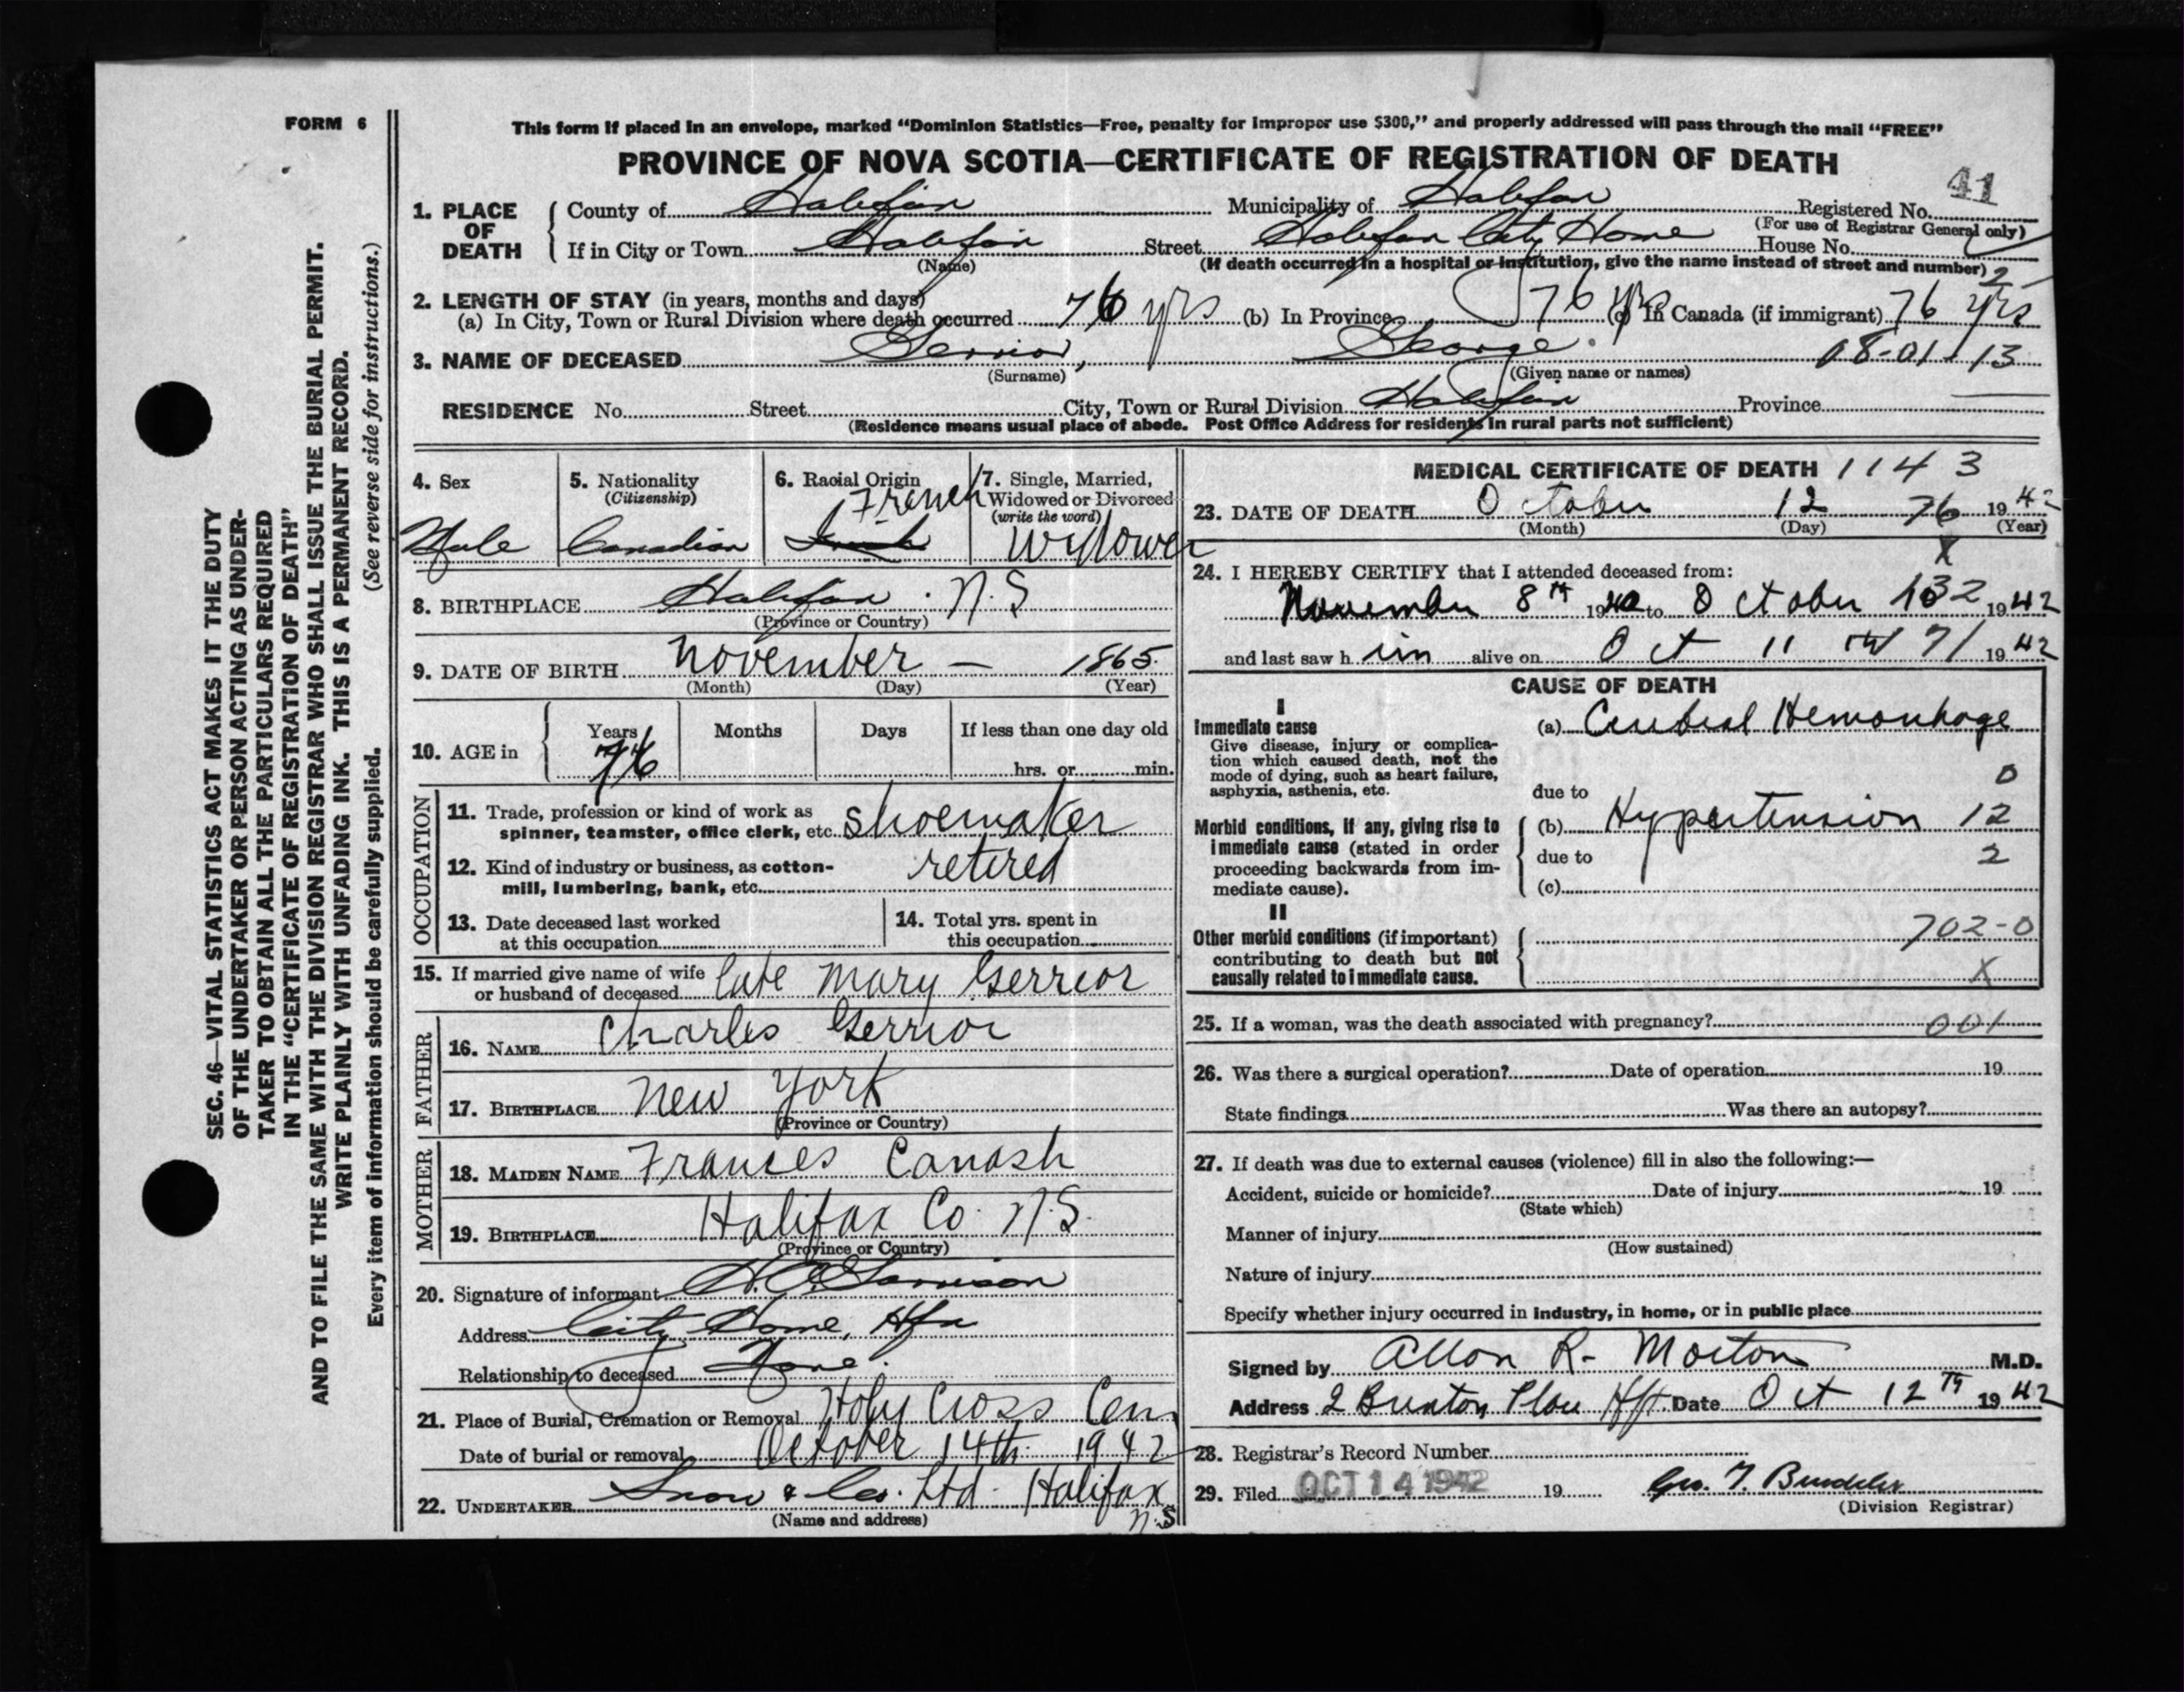 FORM 6
This form if placed in an envelope, marked “Dominion Statistics—Free, penalty for improper use $300,” and properly addressed will pass through the mail “FREE”
PROVINCE OF NOVA SCOTIA—CERTIFICATE OF REGISTRATION OF DEATH
41
1. PLACE OF DEATH
County of Halifax Municipality of Halifax Registered No.
(For use of Registrar General only)
If in City or Town Halifax Street Halifax City Home House No.
(Name) (If death occurred in a hospital or institution, give the name instead of street and number)
2. LENGTH OF STAY (in years, months and days)
(a) In City, Town or Rural Division where death occurred 76 yrs (b) In Province 76 yrs (c) In Canada (if immigrant) 76 yrs
3. NAME OF DECEASED Gerrior, George. 08-01-13
(Surname) (Given name or names)
RESIDENCE No. Street City, Town or Rural Division Halifax Province
(Residence means usual place of abode. Post Office Address for residents in rural parts not sufficient)
4. Sex
Male
5. Nationality
(Citizenship)
Canadian
6. Racial Origin
French
7. Single, Married,
Widowed or Divorced
(write the word)
Widower
8. BIRTHPLACE Halifax. N.S
(Province or Country)
9. DATE OF BIRTH November — 1865.
(Month) (Day) (Year)
10. AGE in
Years Months Days If less than one day old
76 hrs. or min.
OCCUPATION
11. Trade, profession or kind of work as
spinner, teamster, office clerk, etc. shoemaker
12. Kind of industry or business, as cotton-
mill, lumbering, bank, etc. retired
13. Date deceased last worked
at this occupation
14. Total yrs. spent in
this occupation
15. If married give name of wife
or husband of deceased late Mary Gerrior
FATHER
16. NAME Charles Gerrior
17. BIRTHPLACE New York
(Province or Country)
MOTHER
18. MAIDEN NAME Frances Canash
19. BIRTHPLACE Halifax Co. N.S.
(Province or Country)
20. Signature of informant
Address City Home, Hfx
Relationship to deceased None.
21. Place of Burial, Cremation or Removal Holy Cross Cem
Date of burial or removal October 14th. 1942
22. UNDERTAKER Snow & Co. Ltd. Halifax
N.S
(Name and address)
MEDICAL CERTIFICATE OF DEATH 1143
23. DATE OF DEATH October 12 76 1942
(Month) (Day) (Year)
X
24. I HEREBY CERTIFY that I attended deceased from:
November 8th 1940 to October 1942
and last saw him alive on Oct 11 th 71 1942
CAUSE OF DEATH
I
Immediate cause
Give disease, injury or complica-
tion which caused death, not the
mode of dying, such as heart failure,
asphyxia, asthenia, etc.
(a) Cerebral Hemorrhage
0
due to
Morbid conditions, if any, giving rise to
immediate cause (stated in order
proceeding backwards from im-
mediate cause).
(b) Hypertension 12
due to 2
(c)
II
Other morbid conditions (if important)
contributing to death but not
causally related to immediate cause.
702-0
X
25. If a woman, was the death associated with pregnancy? 001
26. Was there a surgical operation? Date of operation 19
State findings Was there an autopsy?
27. If death was due to external causes (violence) fill in also the following:—
Accident, suicide or homicide? Date of injury 19
(State which)
Manner of injury
(How sustained)
Nature of injury
Specify whether injury occurred in industry, in home, or in public place
Signed by Allon R. Morton M.D.
Address 2 Hfx Date Oct 12th 1942
28. Registrar's Record Number
29. Filed OCT 14 1942 19 Geo.
(Division Registrar)
SEC. 46—VITAL STATISTICS ACT MAKES IT THE DUTY
OF THE UNDERTAKER OR PERSON ACTING AS UNDER-
TAKER TO OBTAIN ALL THE PARTICULARS REQUIRED
IN THE “CERTIFICATE OF REGISTRATION OF DEATH”
AND TO FILE THE SAME WITH THE DIVISION REGISTRAR WHO SHALL ISSUE THE BURIAL PERMIT.
WRITE PLAINLY WITH UNFADING INK. THIS IS A PERMANENT RECORD.
Every item of information should be carefully supplied. (See reverse side for instructions.)